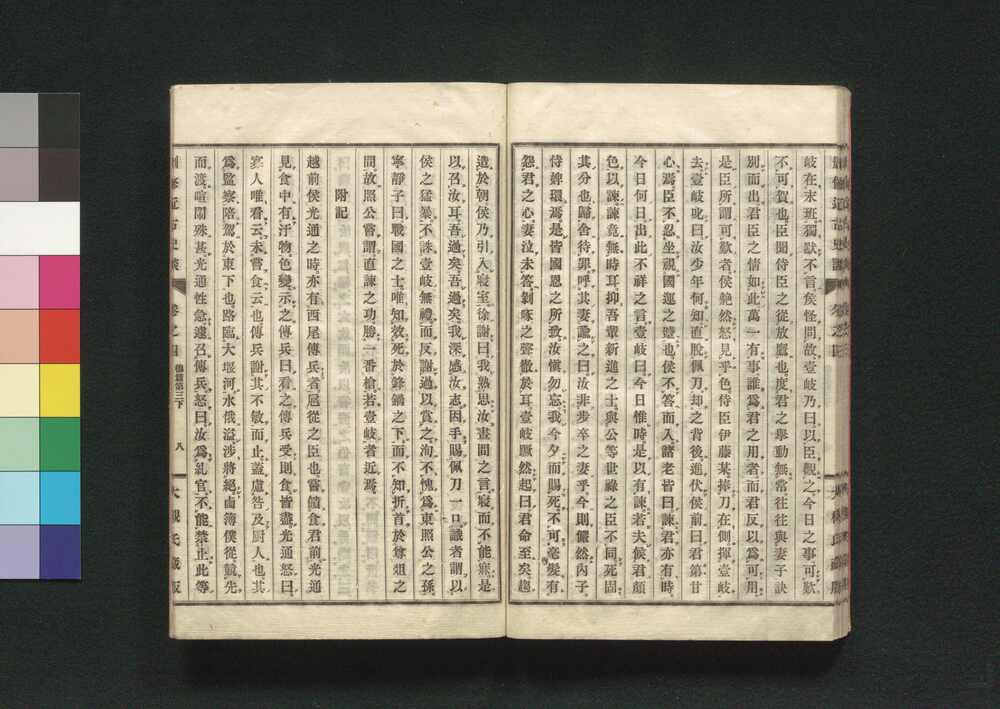 岐在末班獨默不言侯怪問故壹岐乃曰以臣觀之今日之事可歎
不可賀也臣聞侍臣之從放鷹也度君之擧動無常往往與妻子訣
別而出君臣之情如此萬一有事誰爲君之用者而君反以爲可用
是臣所謂可歎者侯艴然怒見乎色侍臣伊藤某捧刀在側揮壹岐
去壹岐叱曰汝少年何知直脫佩刀却之背後進伏侯前曰君第甘
心焉臣不忍坐視國運之蹙也侯不答而入諸老皆曰諫君亦有時
今日何日出此不祥之言壹岐曰今日惟時是以有諫若夫候君顏
色以諫諫竟無時耳抑吾輩新進之士與公等世祿之臣不同死固
其分也歸舍待罪呼其妻諭之曰汝非步卒之妻乎今則儼然內子
侍婢環焉是皆國恩之所致汝愼勿忘我今夕而賜死不可毫髮有
怨君之心妻泣未答剝啄之聲徹於耳壹岐蹶然起曰君命至矣趨
造於朝侯乃引入寢室徐謝曰我熟思汝晝間之言寢而不能寐是
以召汝耳吾過矣吾過矣我深感汝志因手賜佩刀一口識者謂以
侯之猛暴不誅壹岐無禮而反謝過以賞之洵不愧爲東照公之孫
寧靜子曰戰國之士唯知效死於鋒鏑之下而不知折首於尊俎之
間故照公嘗謂直諫之功勝一番槍若壹岐者近焉
附記
越前侯光通之時亦有西尾傳兵者扈從之臣也嘗饋食君前光通
見食中有汙物色變示之傳兵曰看之傳兵受則食皆盡光通怒曰
寡人唯看云未嘗食云也傳兵謝其不敏而止蓋慮咎及厨人也其
爲監察陪駕於東下也路臨大堰河水俄溢涉將絕鹵簿僕從競先
而渡喧鬧殊甚光通性急遽召傳兵怒曰汝爲糺官不能禁止此等
近古史談 卷之四 德篇第三下 八 大槻氏藏版